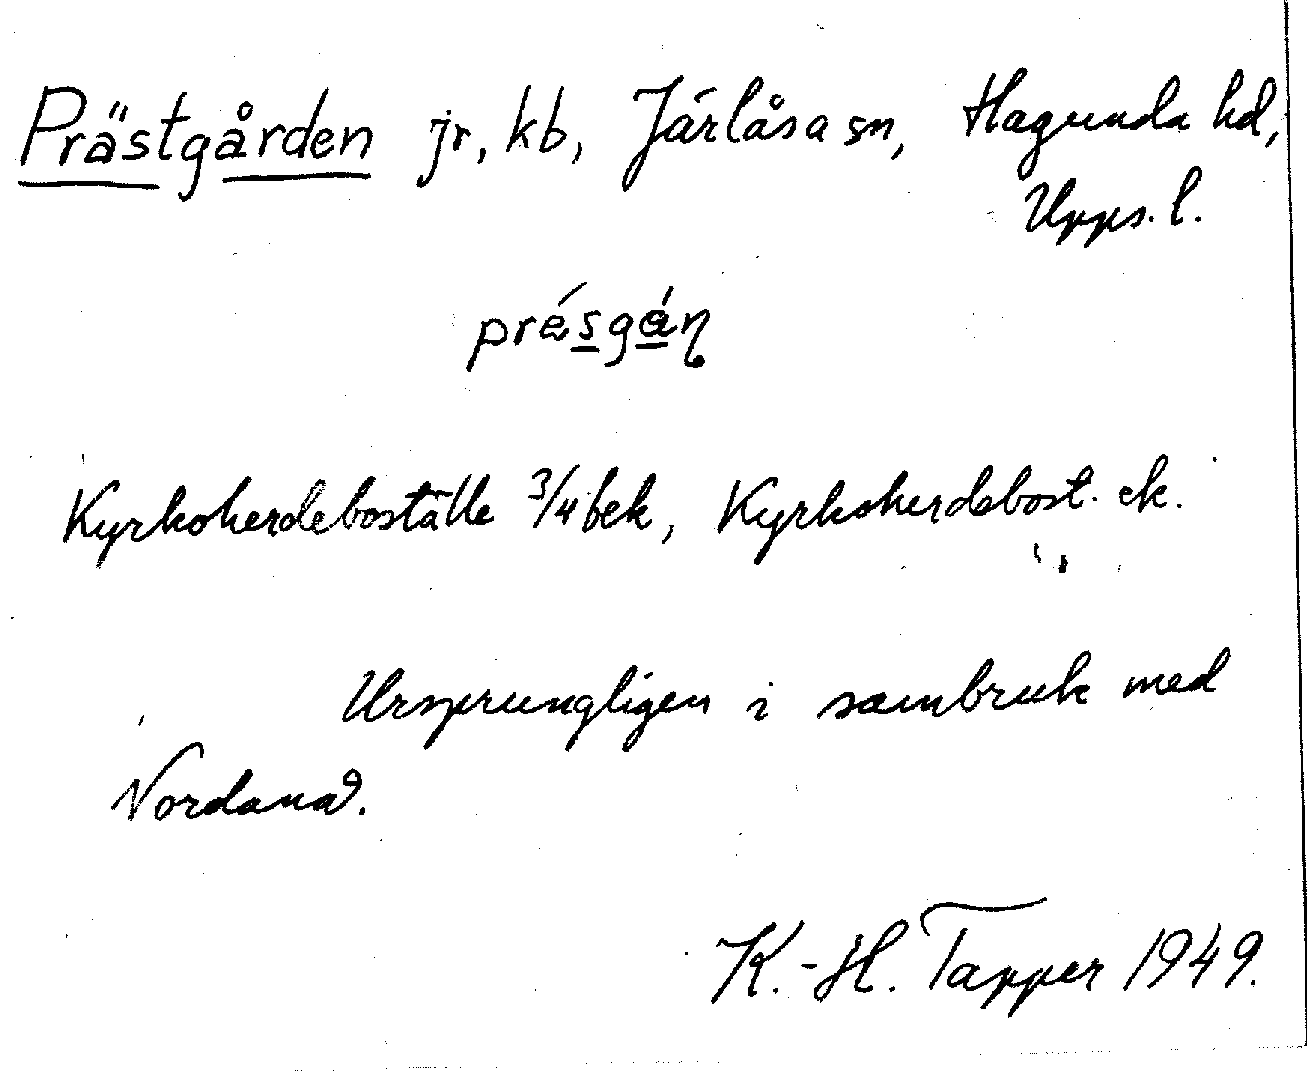 Prästgården jr, kb, Järlåsa sn, Hagunda hd,
Upps. l.
Kyrkoherdeboställe 3/4 bek, Kyrkoherdebost. ek.
Ursprungligen i sambruk med
Nordanå.
K.-H. Tapper 1949.